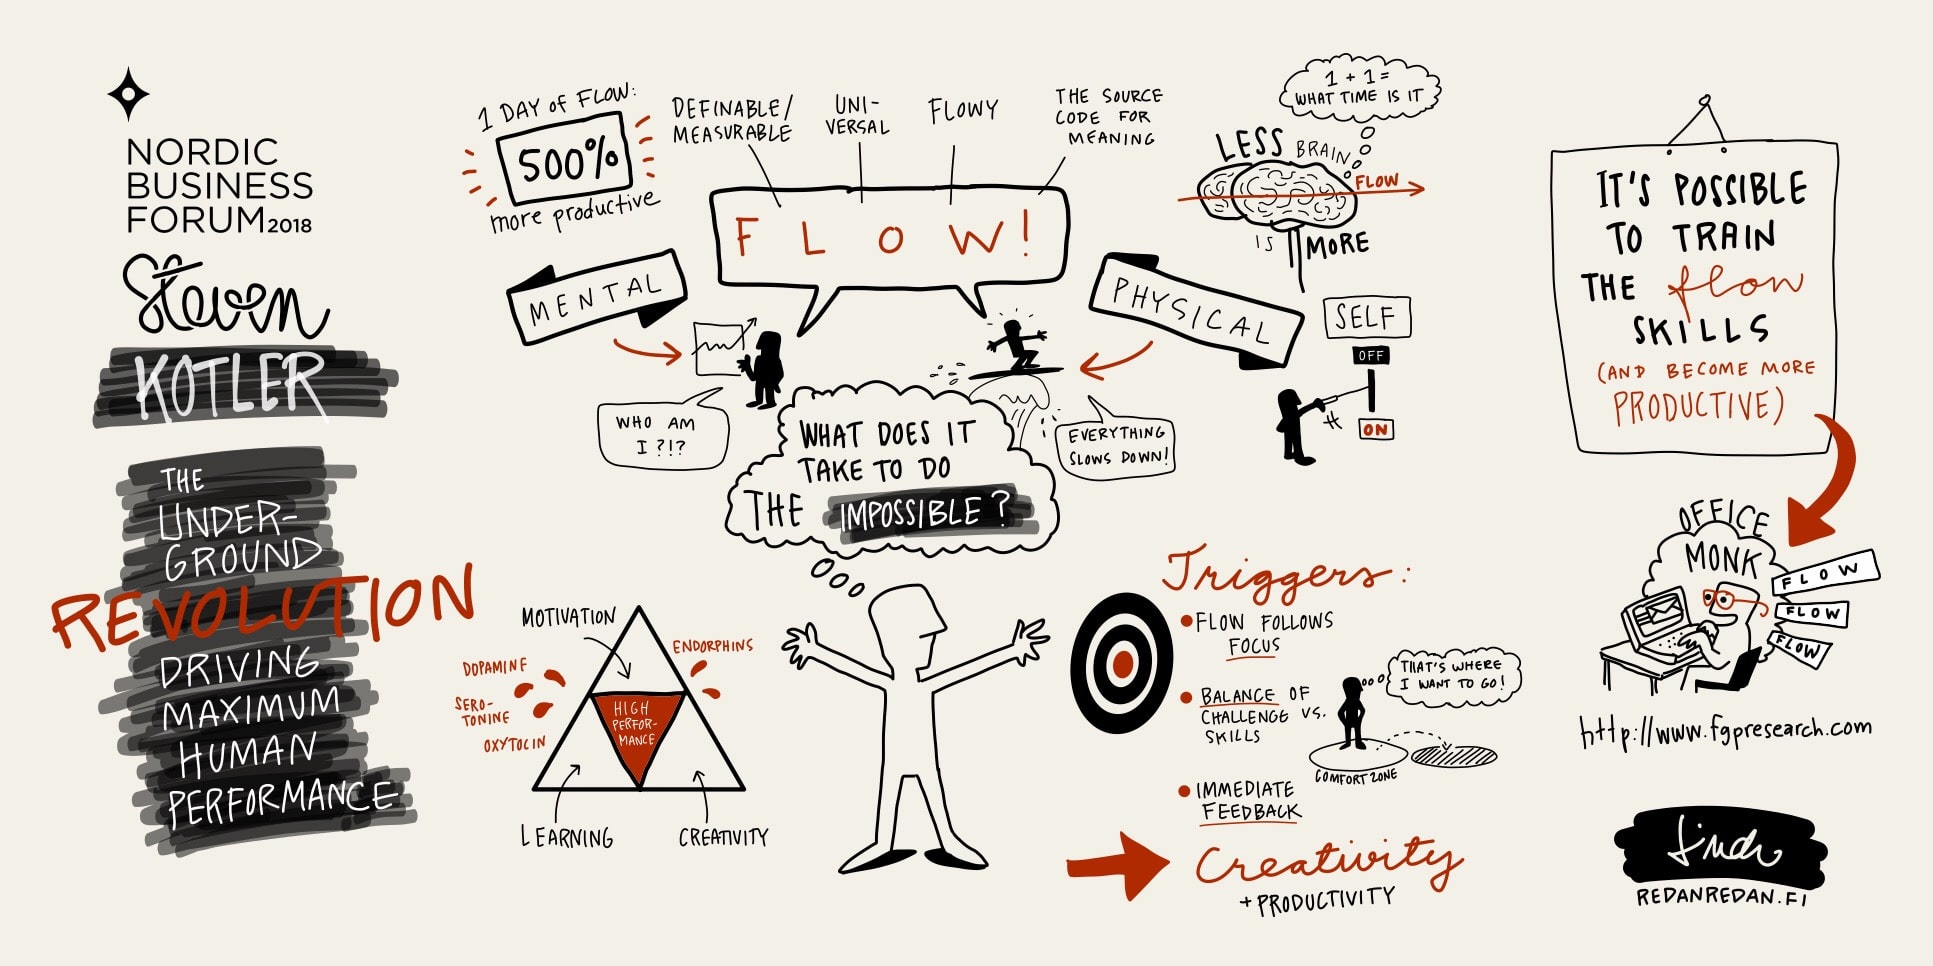 NORDIC
BUSINESS
FORUM2018
Steven
KOTLER
THE
UNDER-
GROUND
REVOLUTION
DRIVING
MAXIMUM
HUMAN
PERFORMANCE
1 DAY OF FLOW:
500%
more productive
DEFINABLE/
MEASURABLE
UNI-
VERSAL
FLOWY
THE SOURCE
CODE FOR
MEANING
FLOW!
MENTAL
PHYSICAL
WHO AM
I ?!?
EVERYTHING
SLOWS DOWN!
WHAT DOES IT
TAKE TO DO
THE IMPOSSIBLE?
1 + 1 =
WHAT TIME IS IT
LESS BRAIN
FLOW
IS MORE
SELF
OFF
ON
MOTIVATION
ENDORPHINS
DOPAMINE
SERO-
TONINE
OXYTOCIN
HIGH
PERFOR-
MANCE
LEARNING
CREATIVITY
Triggers:
FLOW FOLLOWS
FOCUS
BALANCE OF
CHALLENGE VS.
SKILLS
THAT'S WHERE
I WANT TO GO!
COMFORT ZONE
IMMEDIATE
FEEDBACK
Creativity
+ PRODUCTIVITY
IT'S POSSIBLE
TO TRAIN
THE flow
SKILLS
(AND BECOME MORE
PRODUCTIVE)
OFFICE
MONK
FLOW
FLOW
FLOW
http://www.fgpresearch.com
REDANREDAN.FI